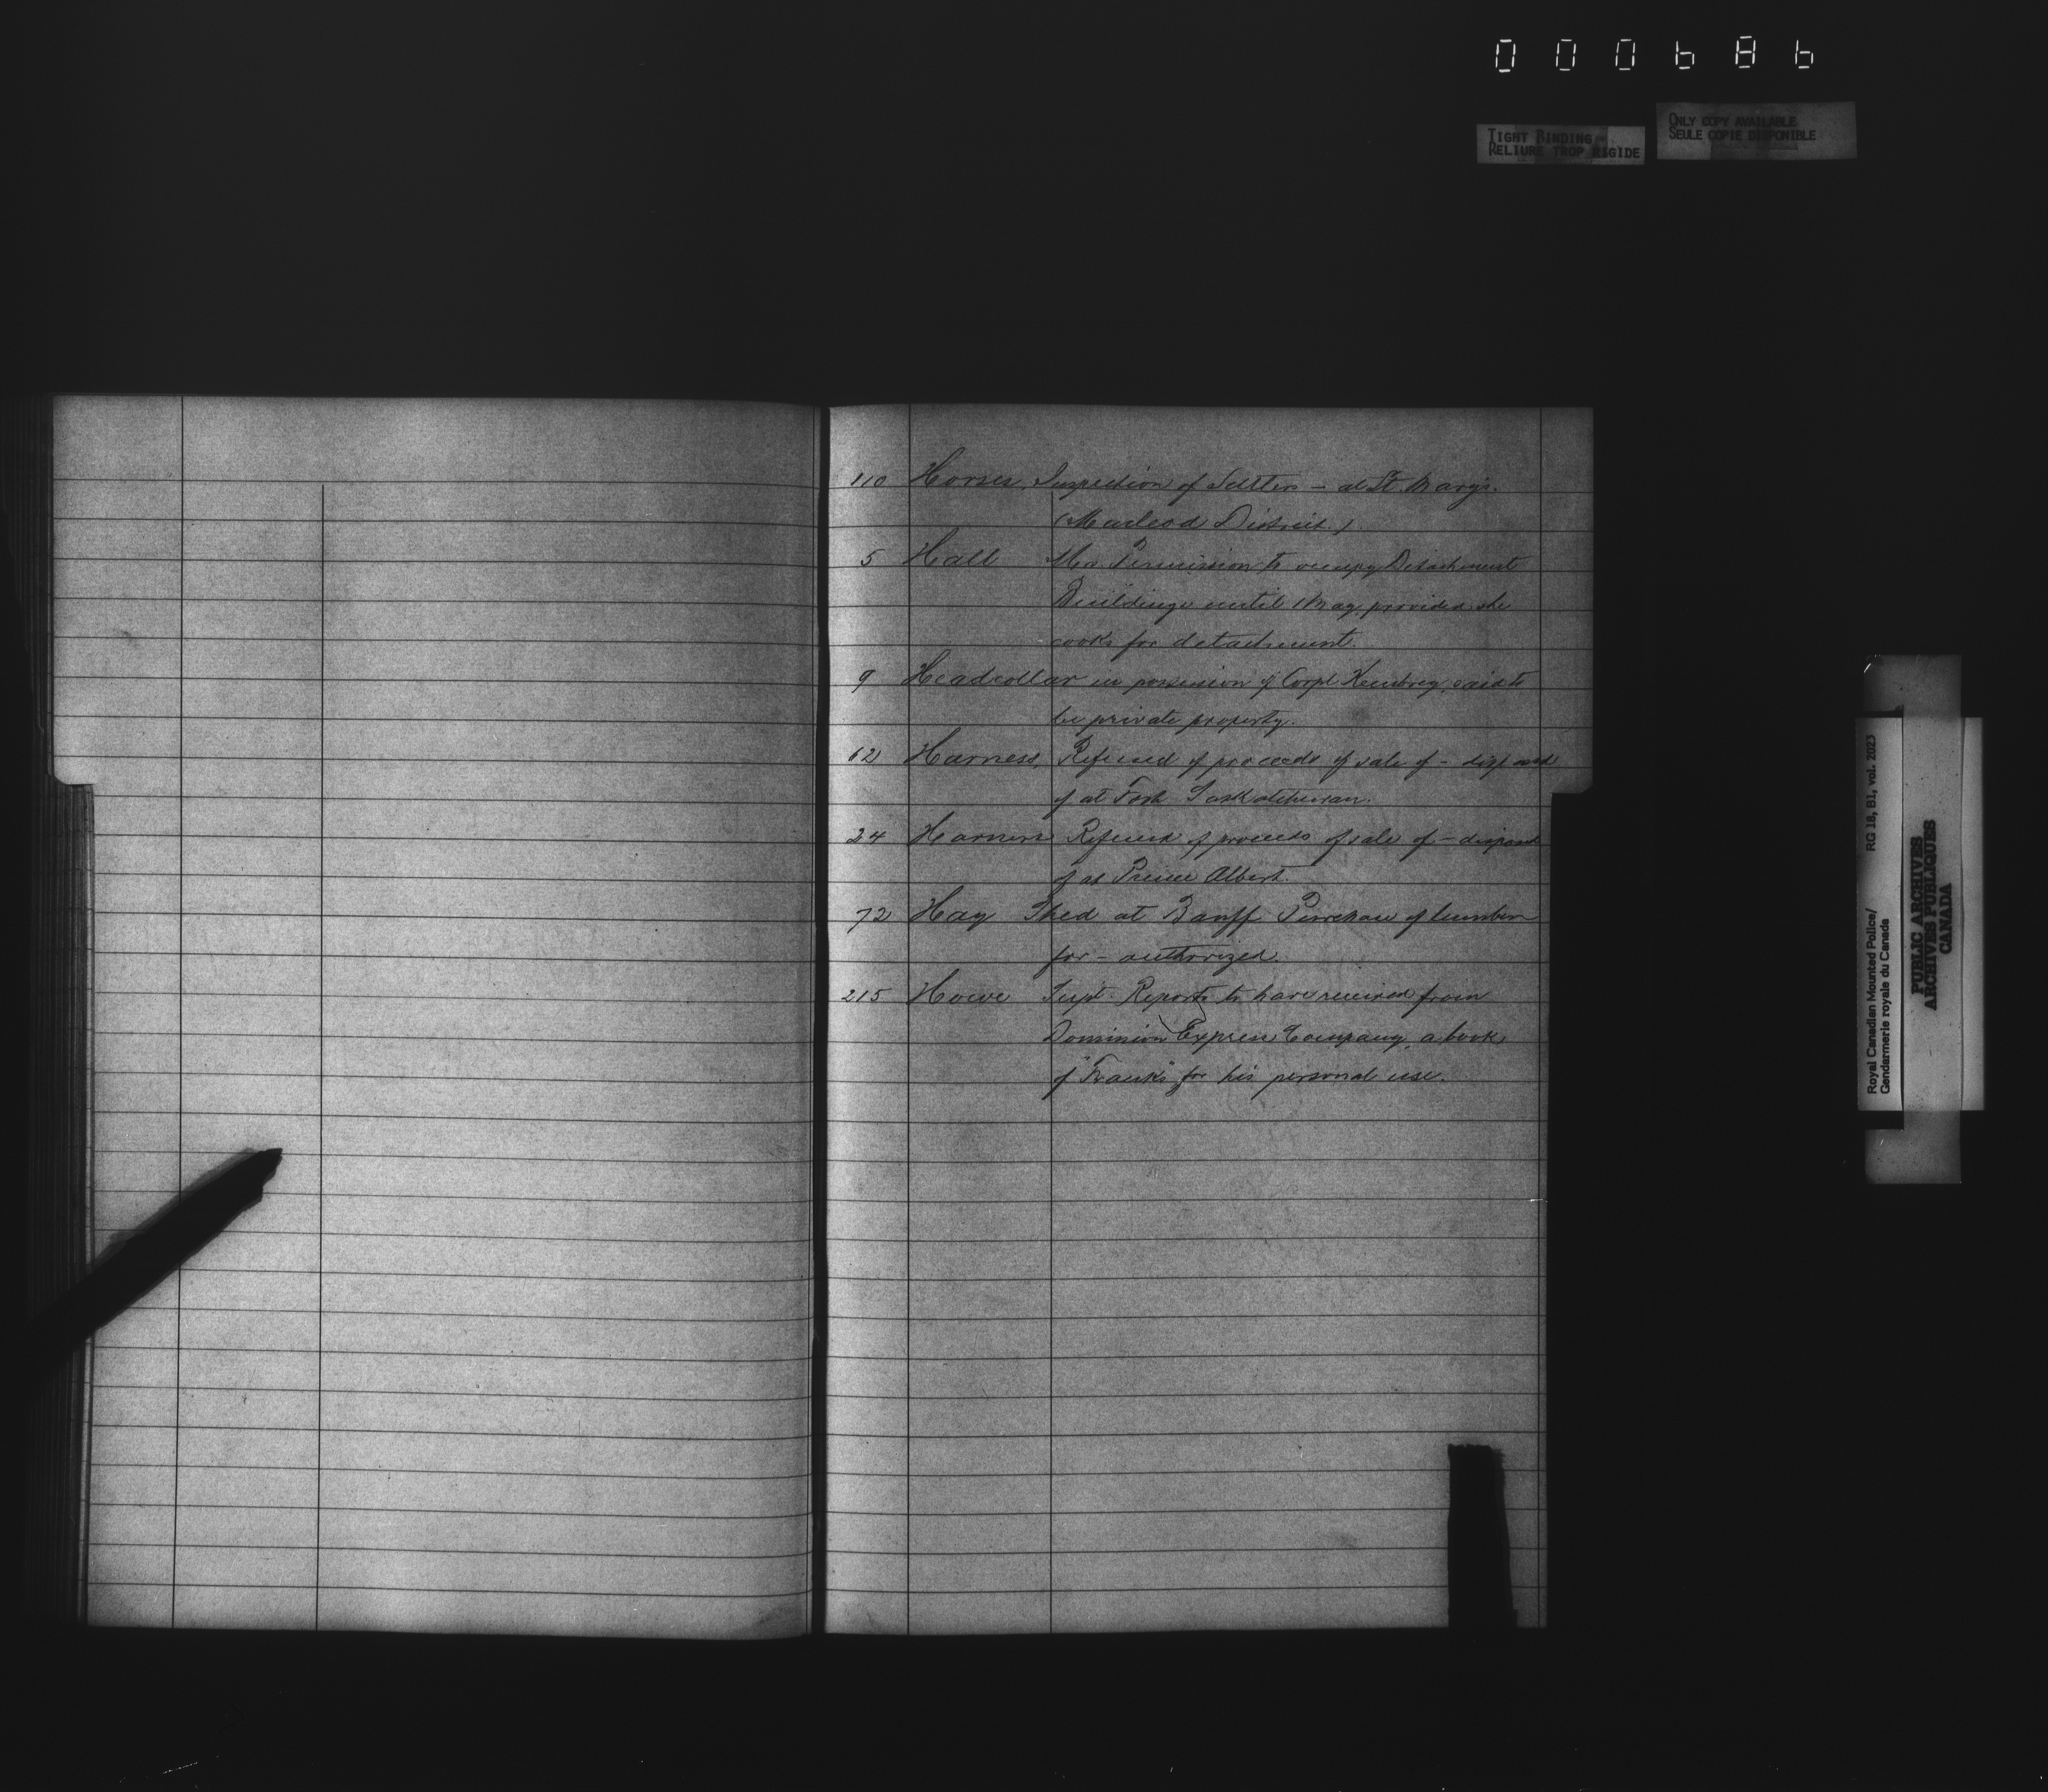 000686
TIGHT BINDING
RELIURE TROP RIGIDE
ONLY COPY AVAILABLE
SEULE COPIE DISPONIBLE
110 Horses, Inspection of Settlers – at St. Mary's.
(Macleod District.)
5 Hall Mrs. Permission to occupy Detachment
Buildings until 1 May, provided she
cooks for detachment.
9 Headcollar in possession of Corpl. said to
be private property.
62 Harness, Refund of proceeds of sale of – disposed
of at Fort Saskatchewan.
24 Harness Refund of proceeds of sale of – disposed
of at Prince Albert.
72 Hay Shed at Banff Purchase of lumber
for – authorized.
215 Howe Supt. Reports to have received from
Dominion Express Company, a book
of "Franks" for his personal use.
Royal Canadian Mounted Police/
Gendarmerie royale du Canada
RG 18, B1, vol. 2023
PUBLIC ARCHIVES
ARCHIVES PUBLIQUES
CANADA